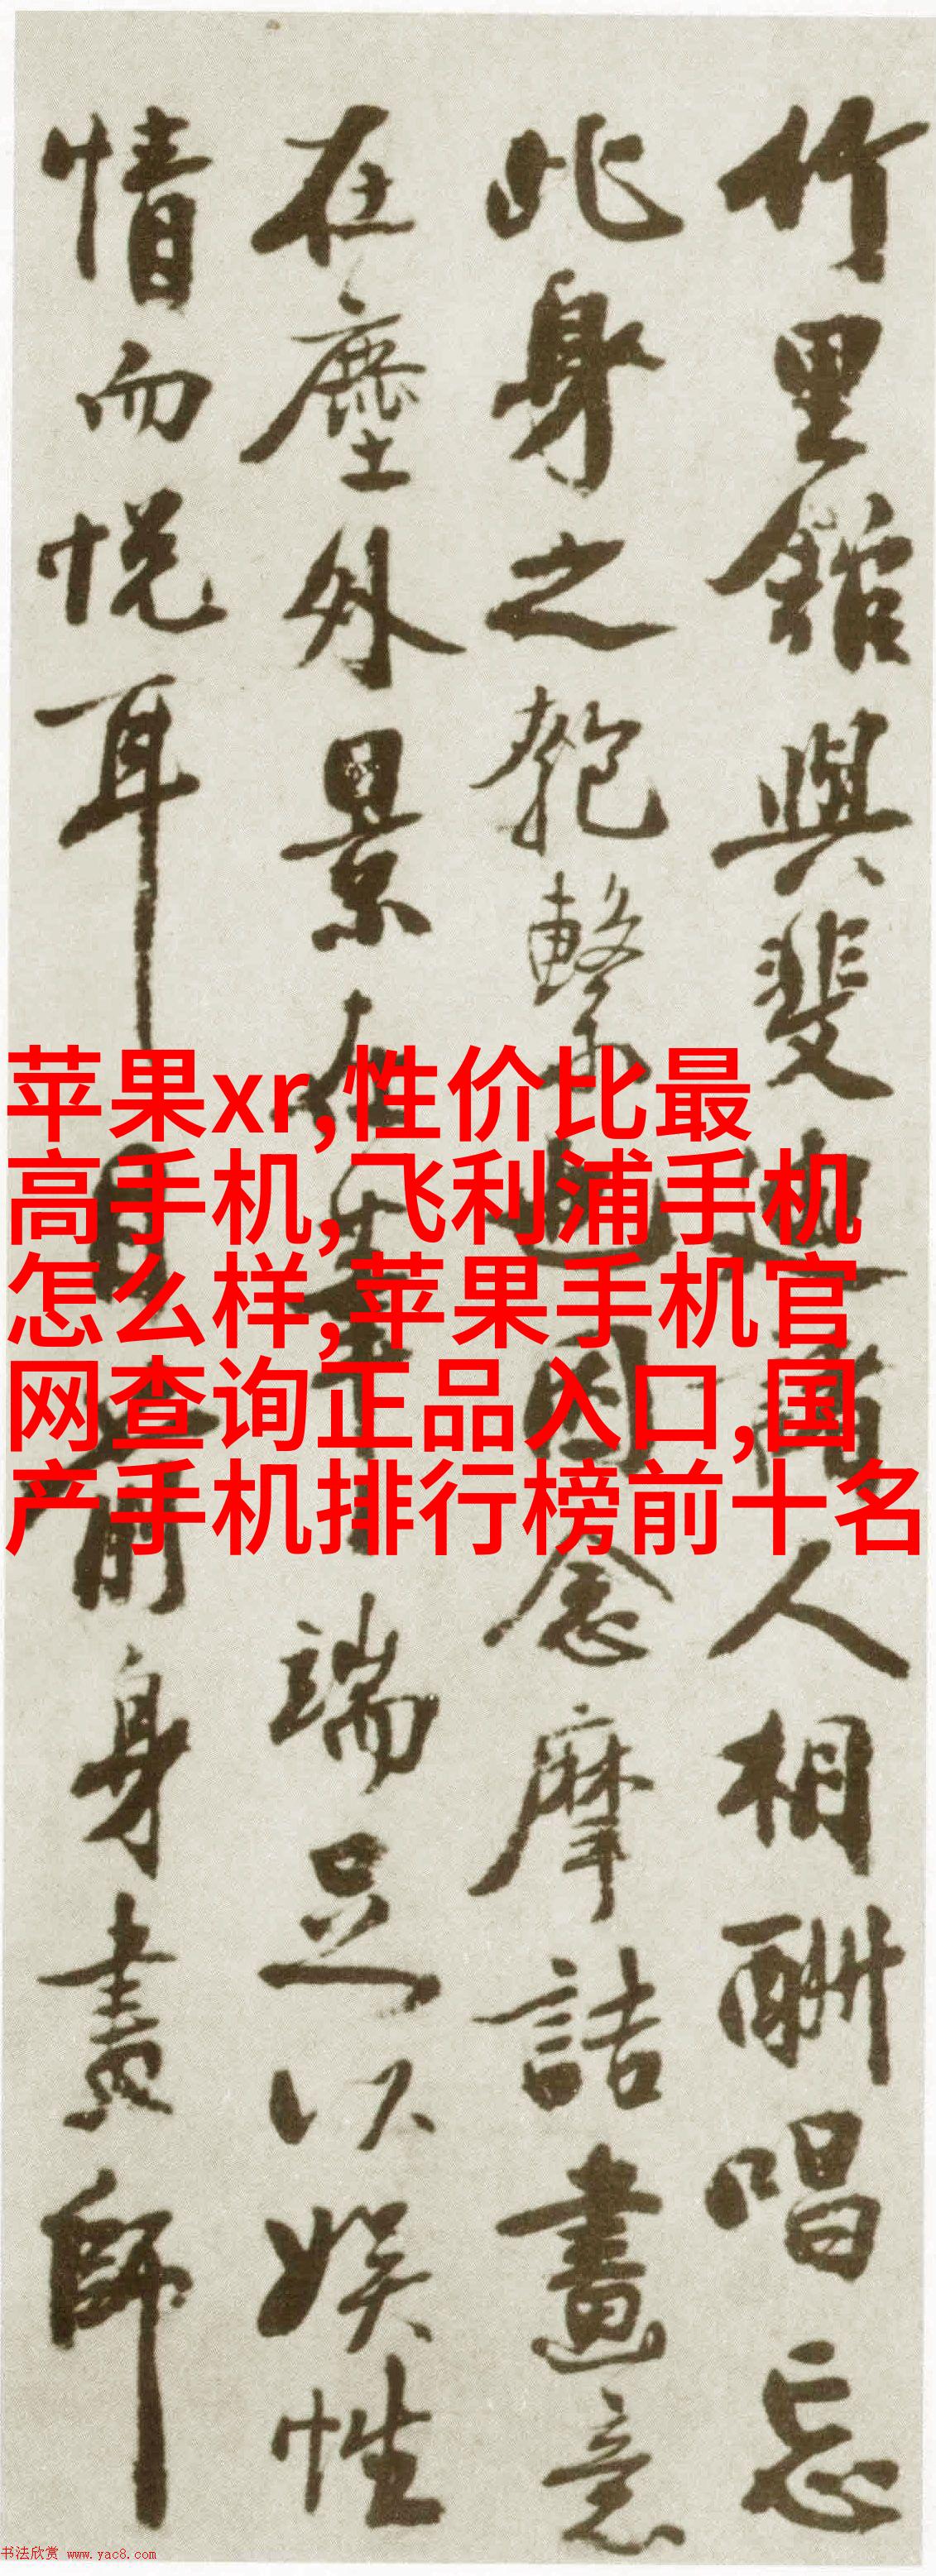 竹里館與斐迪人相酬唱忘
此身之匏繫也因念摩詰畫意
在塵外景在筆端足以娛性
情而悅耳目前身畫師
苹果xr,性价比最
高手机,飞利浦手机
怎么样,苹果手机官
网查询正品入口,国
产手机排行榜前十名
书法欣赏 www.yac8.com